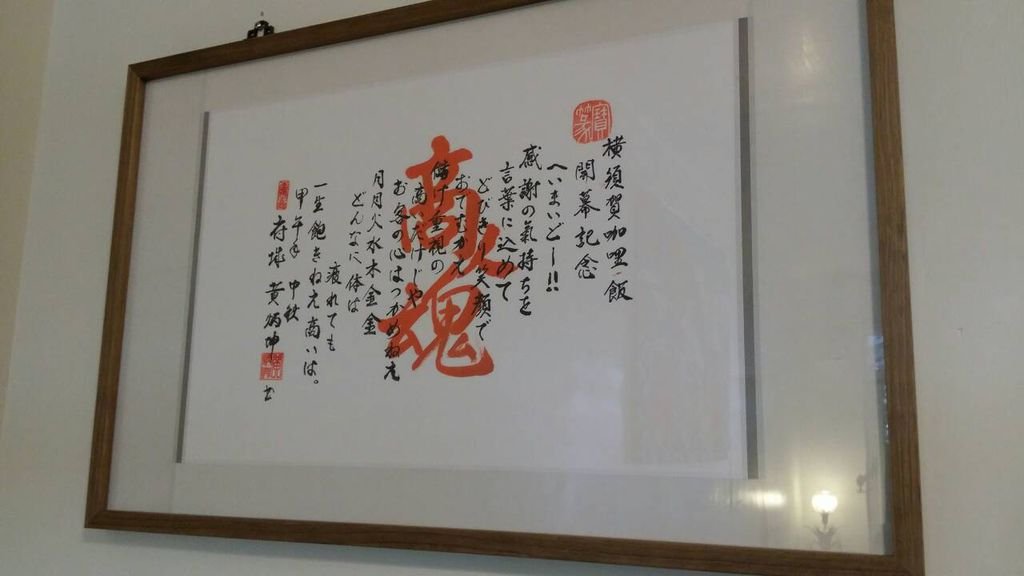 横須賀咖哩飯
開幕記念
へいまいどー!!
感謝の氣持ちを
言葉に込めて
とびきり笑顔で
おでむかえ
儲け重視の
商いだけじゃ
お客の心はつかめねえ
月月火水木金金
どんなに体は
疲れても
一生飽きねえ商いは。
甲午年 中秋
府城 黄炳坤 书
商魂